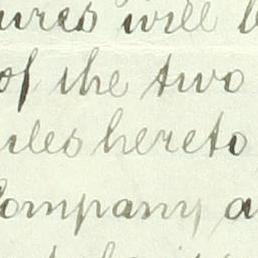 ures will b
of the two
ules hereto
Company a